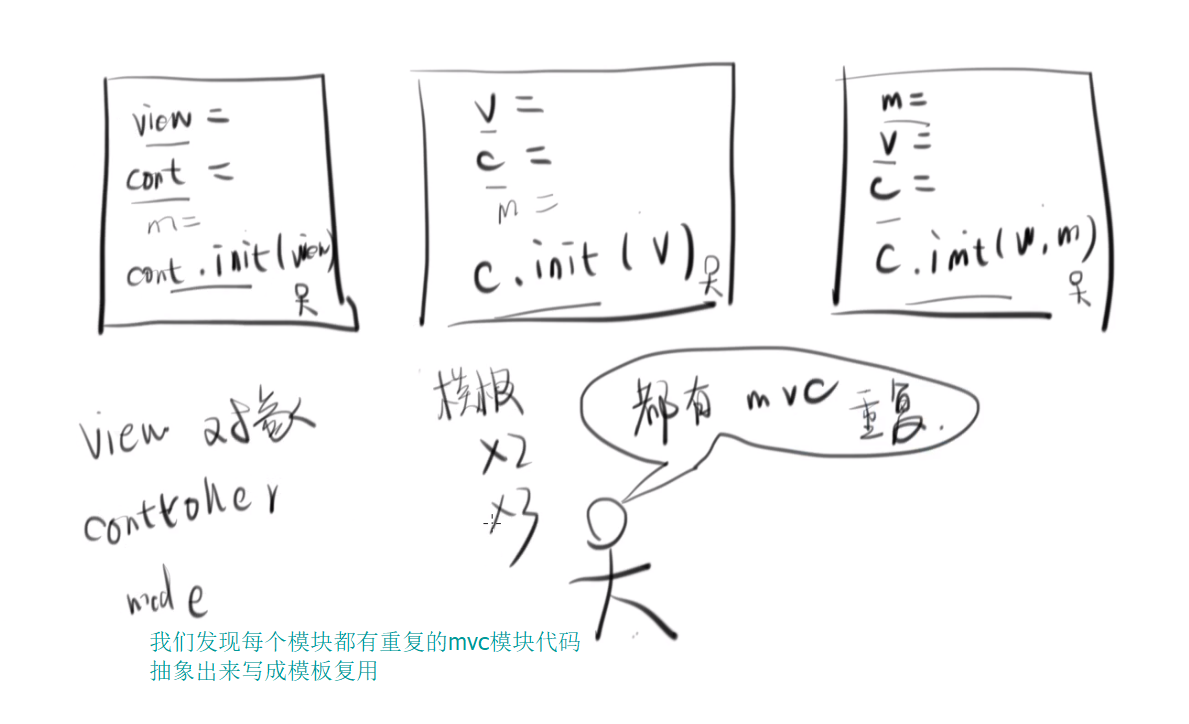 view =
cont =
m =
cont.init(view)
v =
c =
m =
c.init(v)
m =
v =
c =
c.init(v,m)
view 对象
controller
mode
模板
×2
×3
都有 mvc 重复.
我们发现每个模块都有重复的mvc模块代码
抽象出来写成模板复用